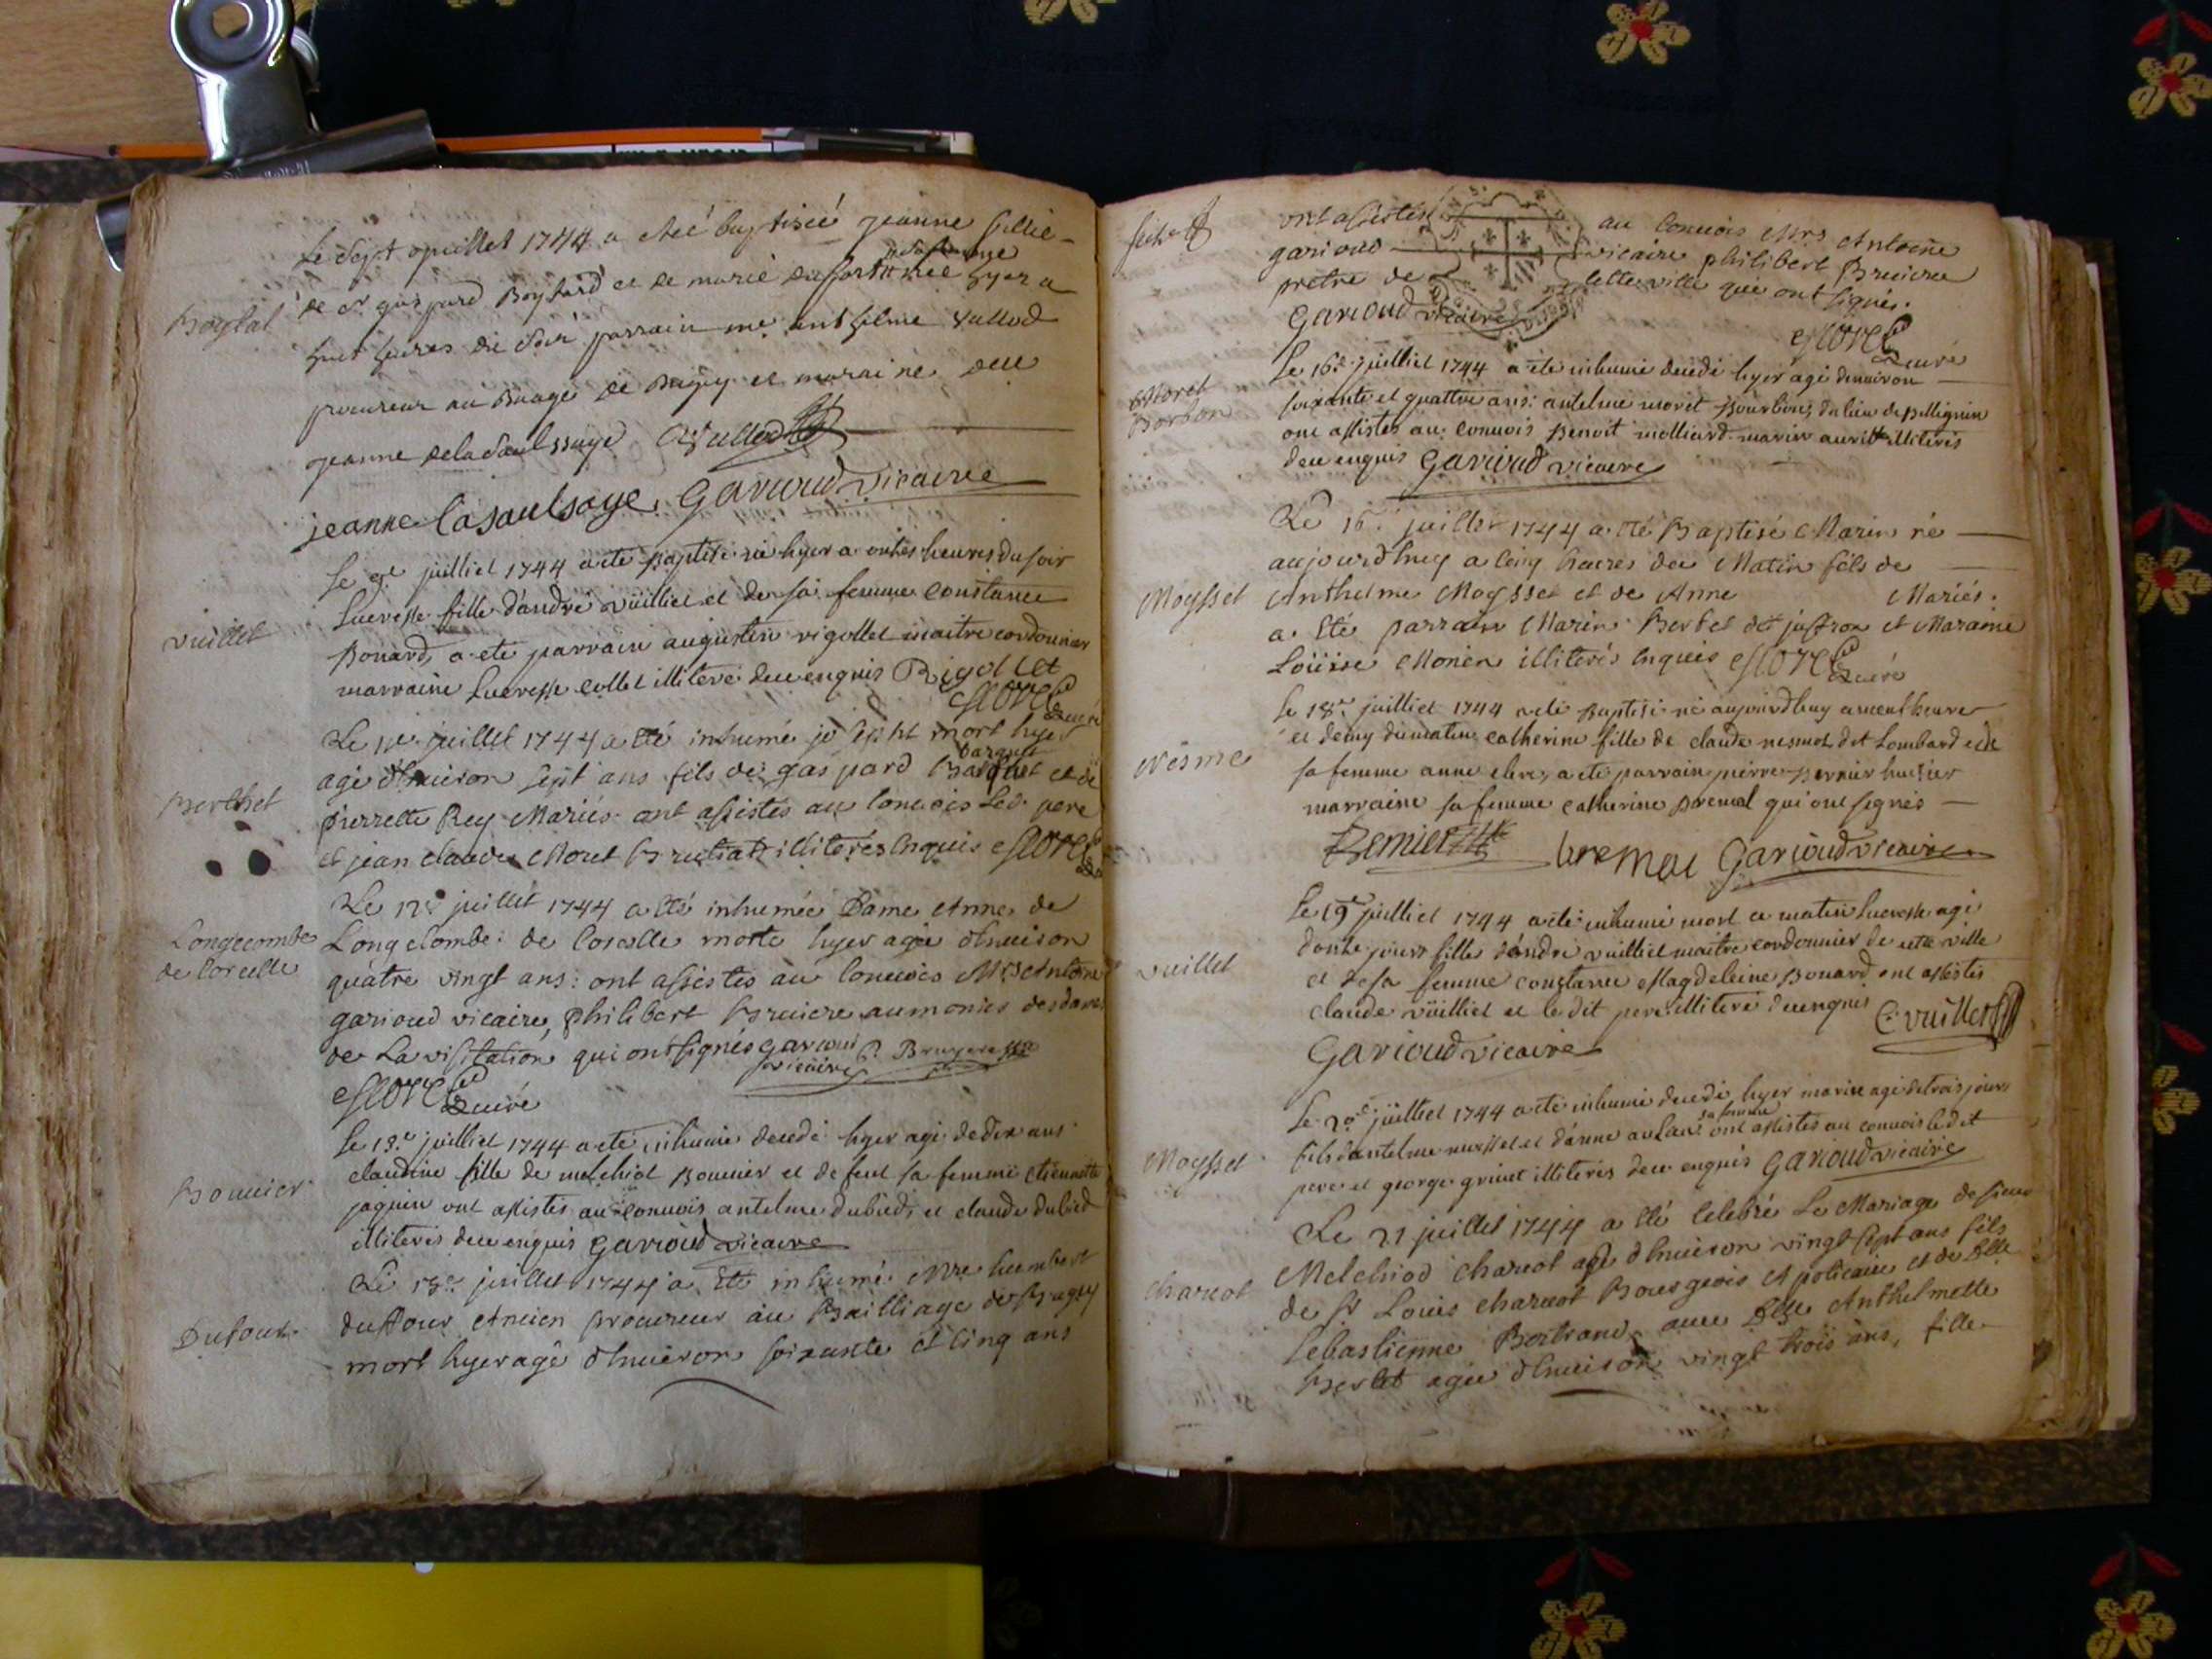 Le sept juillet 1744 a eteé baptiseé jeanne fillie
de Sr gaspard Boylard et de marie née hyer a
Boylat
huit heures du soir parrain me anthelme Vullod
procureur au Buage de Bugey et maraine delle
jeanne dela Saulssaye AVullod
jeanne lasaulsaye. Garioud vicaire
Le 9e juilliet 1744 a ete Baptisé hyer a onzes heures du soir
Lucresse fille d'andré vüilliet et de sa femme Constance
vuillet
Bonard, a ete parrain augustin rigollet maitre cordonnier
marraine Lucresse Collet illiteré de ce enquis Rigollet
Morel Curé
Le 11e juillet 1744 a eté inhumé joseph mort hyer
agé d'hnuiron sept ans fils de gaspard barquet et de
Berthet
pierrette Rey Mariés ont assistés au Conuois Led. pere
et jean claude Moret Bruliat illiterés enquis Morel
Le 12e juillet 1744 a eté inhumée Dame Anne de
Longecombe
de Corcelle
Longecombe de Corcelle morte hyer agée d'hnuiron
quatre vingt ans: ont assistés au Conuois Mrs Antoine
garioud vicaire, philibert Bruiere aumonier des dames
de La visitation qui ont signés garioud P. Bruyere ptre
vicaire
Morel Curé
Le 13e juilliet 1744 a ete inhumé decedé hyer agé de dix ans
claudine fille de melchiol Bonnier et de feue sa femme etiennette
Bonnier
jaquin ont assistés au Conuois antelme dubied, et claude dubied
illiterés de ce enquis Garioud vicaire
Le 15e juillet 1744 a eté inhumé Mre humbert
Dufour
duffour Ancien procureur au Bailliage de Bugey
mort hyer agé d'hnuiron soixante et cinq ans
ont assistés au Conuois Mrs Antoine
garioud vicaire philibert Bruiere
pretre de cette ville qui ont signés.
Garioud vicaire
Morel Curé
Le 16e juilliet 1744 a ete inhumé decedé hyer agé denuiron
Moret
Borbon
soixante et quattre ans: antelme moret Bourbon, du lieu de
ont assistés au Conuois Benoit molliard marin illiterés
de ce enquis Garioud vicaire
Le 16e juillet 1744 a eté Baptisé Marin né
aujourd'huy a cinq heures du Matin fils de
Moysset
Anthelme Moysset et de Anne Mariés.
a eté parrain Marin Berbet dit et Maraine
Loüise Monin illiterés enquis Morel Curé
Le 18e juilliet 1744 a eté Baptisé né aujourd'huy a neuf heures
et demy du matin catherine fille de claude nesmoz dit Lombard et de
Nesme
sa femme anne clerc, a ete parrain pierre Bernier huissier
marraine sa femme catherine Bremal qui ont signés
Bernier bremal Garioud vicaire
Le 19e juilliet 1744 a ete inhumé mort ce matin Lucresse agé
vuillet
douze jours fille d'andré vuilliet maitre cordonnier de cette ville
et de sa femme constance Magdeleine Bonard ont assistés
claude vüilliet et le dit pere illiteré de ce enquis C. vuillet
Garioud vicaire
Le 20e juilliet 1744 a eté inhumé decedé hyer marin agé de trois jours
fils dantelme et d'anne sa femme ont assistés au conuois le dit
Moysset
pere et george grinet illiterés de ce enquis Garioud vicaire
Le 21 juillet 1744 a eté Celebré Le Mariage de sieur
Melchiod Charcot agé d'hnuiron vingt sept ans fils
Charcot
de Sr Louis Charcot Bourgeois et policaire et de Dlle
Sebastienne Bertrand, auec Dlle Anthelmette
Berlet agée d'hnuiron vingt trois ans, fille